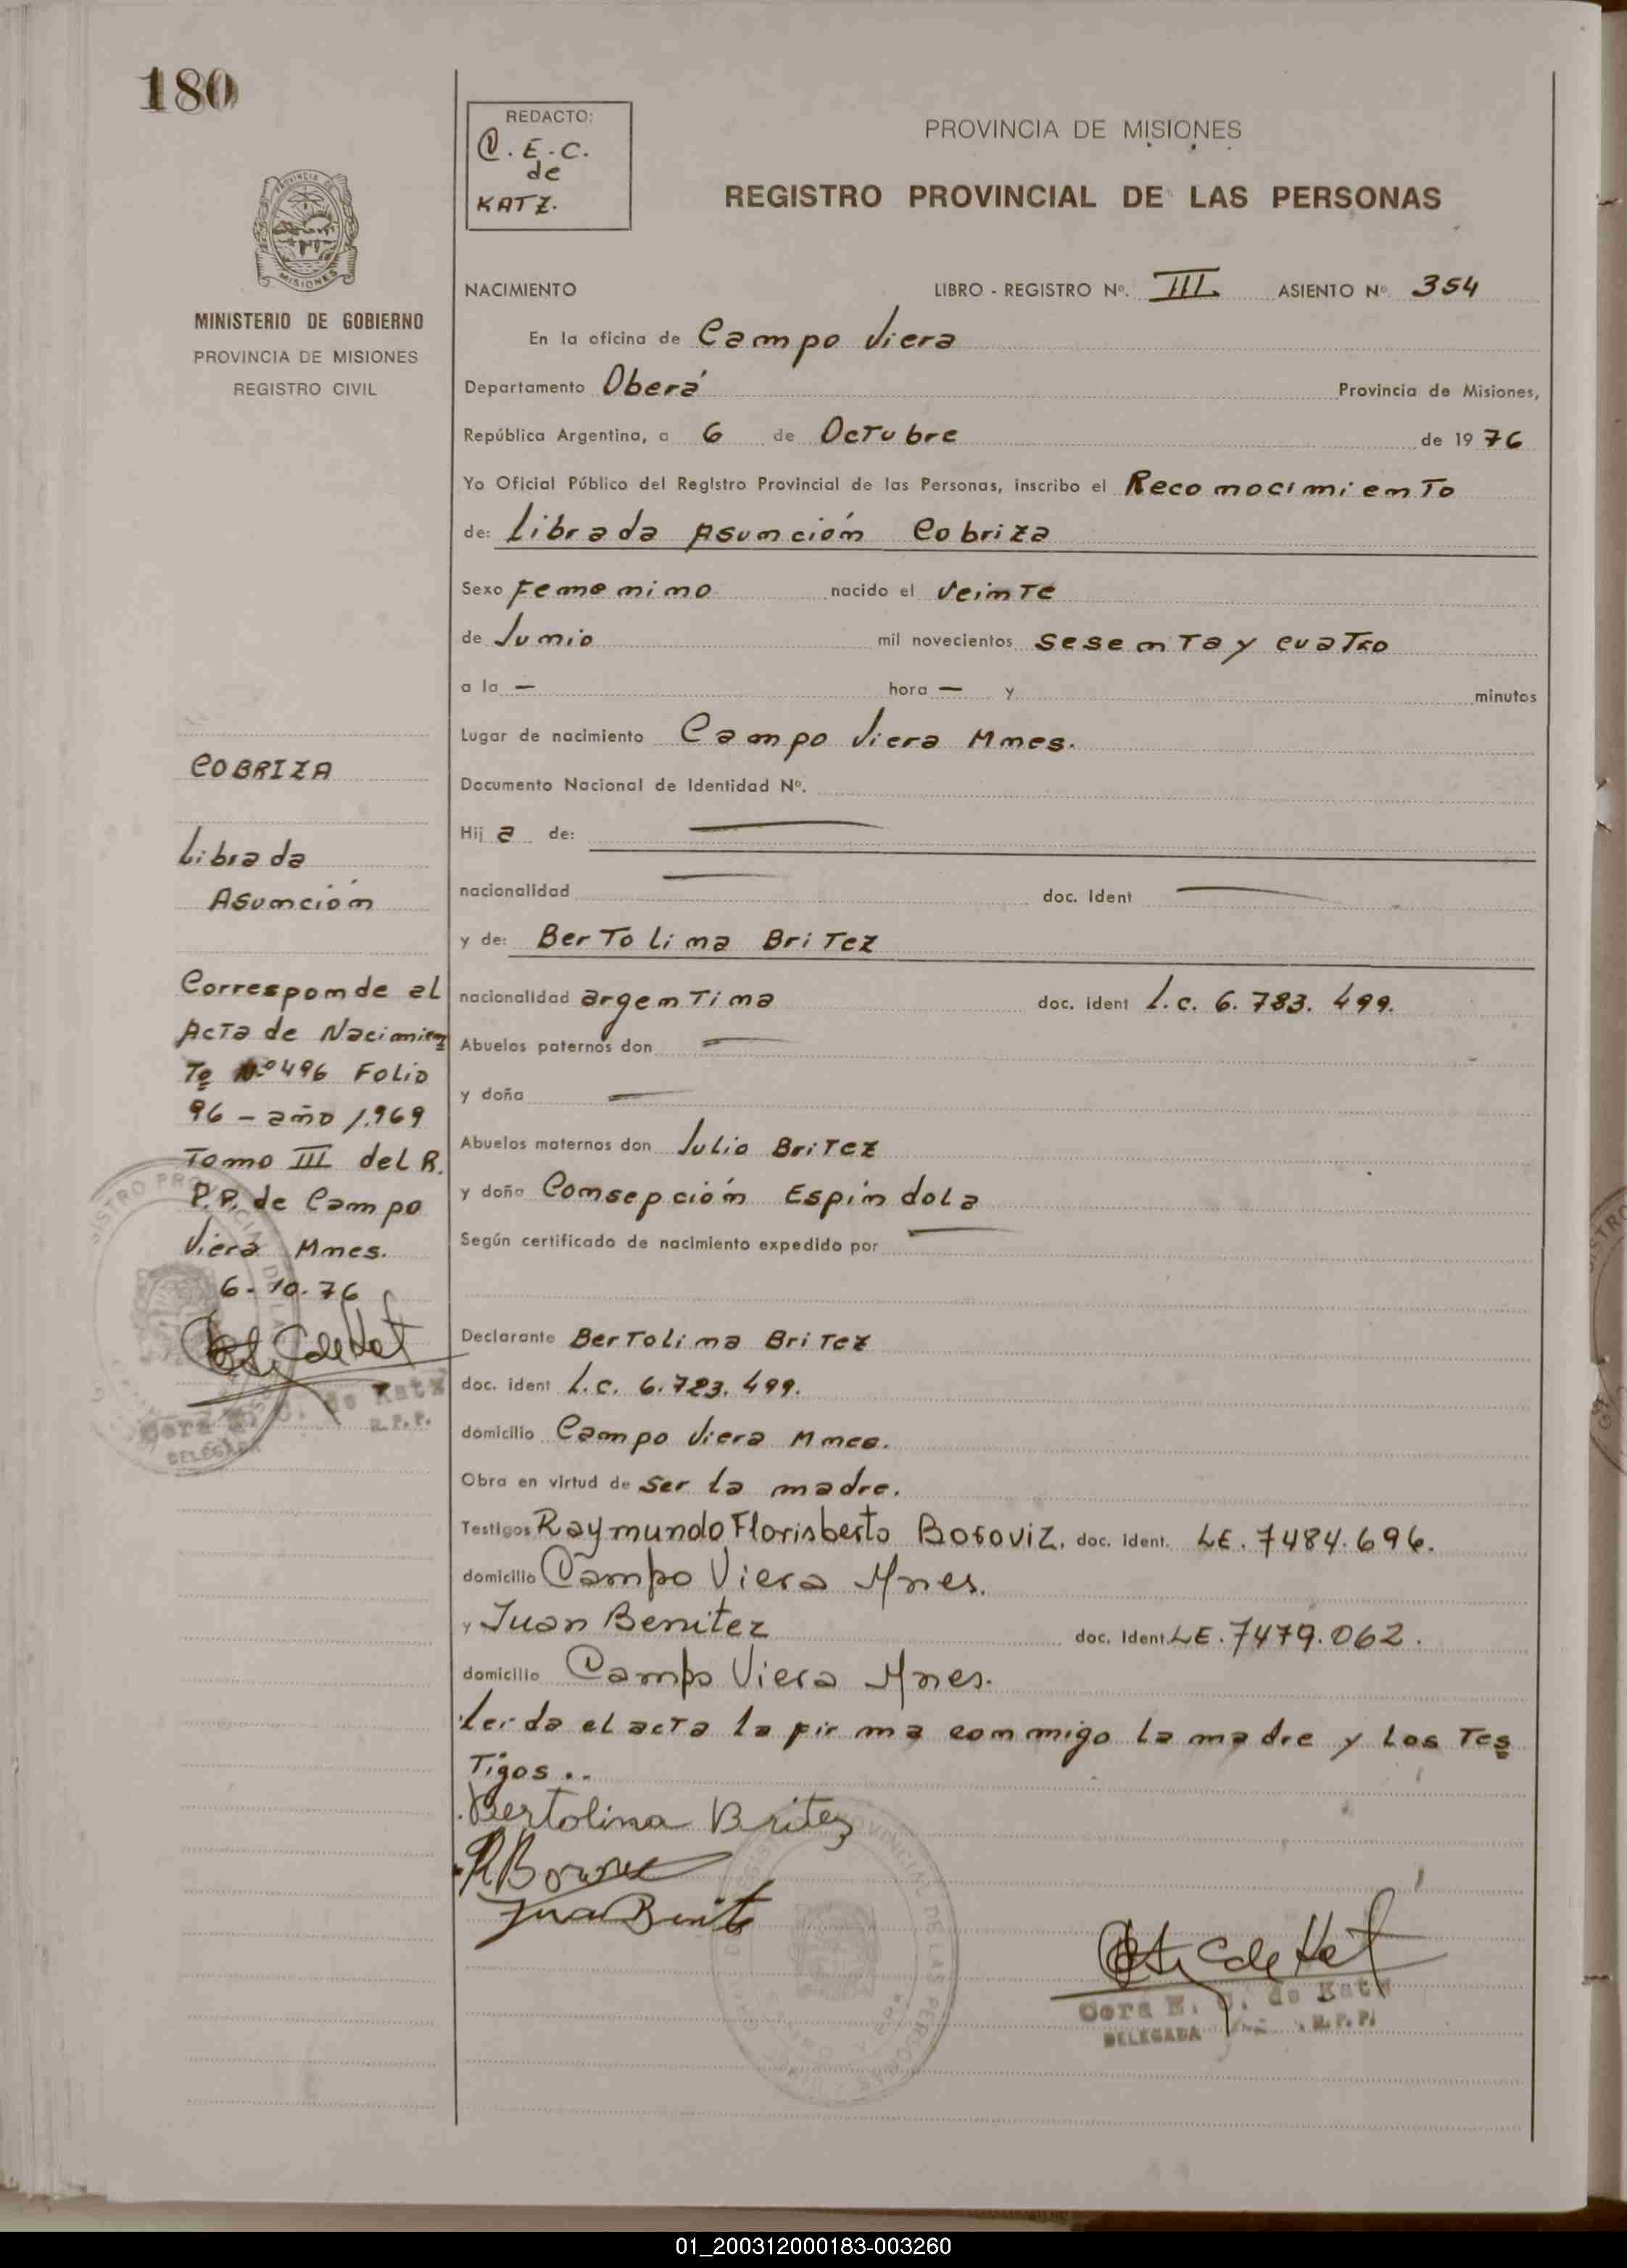 180
REDACTO:
C. E. C.
de
KATZ.
PROVINCIA DE MISIONES
REGISTRO PROVINCIAL DE LAS PERSONAS
MINISTERIO DE GOBIERNO
PROVINCIA DE MISIONES
REGISTRO CIVIL
NACIMIENTO LIBRO - REGISTRO Nº. III. ASIENTO Nº 354
En la oficina de Campo Viera
Departamento Oberá Provincia de Misiones,
República Argentina, a 6 de Octubre de 1976
Yo Oficial Público del Registro Provincial de las Personas, inscribo el Reconocimiento
de: Librada Asunción Cobriza
Sexo Femenino nacido el Veinte
de Junio mil novecientos sesenta y cuatro
a la — hora — y minutos
Lugar de nacimiento Campo Viera Mnes.
Documento Nacional de Identidad Nº.
Hija de: —
nacionalidad — doc. Ident —
y de: Bertolina Britez
nacionalidad argentina doc. ident L.C. 6.783.499.
Abuelos paternos don —
y doña —
Abuelos maternos don Julio Britez
y doña Consepción Espíndola
Según certificado de nacimiento expedido por —
Declarante Bertolina Britez
doc. ident L.C. 6.723.499.
domicilio Campo Viera Mnes.
Obra en virtud de ser la madre.
Testigos Raymundo Florisberto Boroviz. doc. ident. LE. 7484.696.
domicilio Campo Viera Mnes.
y Juan Benitez doc. Ident. LE. 7479.062.
domicilio Campo Viera Mnes.
Leida el acta la firma conmigo la madre y los tes
tigos..
Bertolina Britez
Juan Benite
Cora E. C. de Katz
DELEGADA R.P.P.
COBRIZA
Librada
Asunción
Corresponde al
Acta de Nacimien
to Nº 496 Folio
96 - año 1.969
Tomo III del R.
P.P. de Campo
Viera Mnes.
6-10-76
Cora E. C. de Katz
DELEGADA R.P.P.
01_200312000183-003260